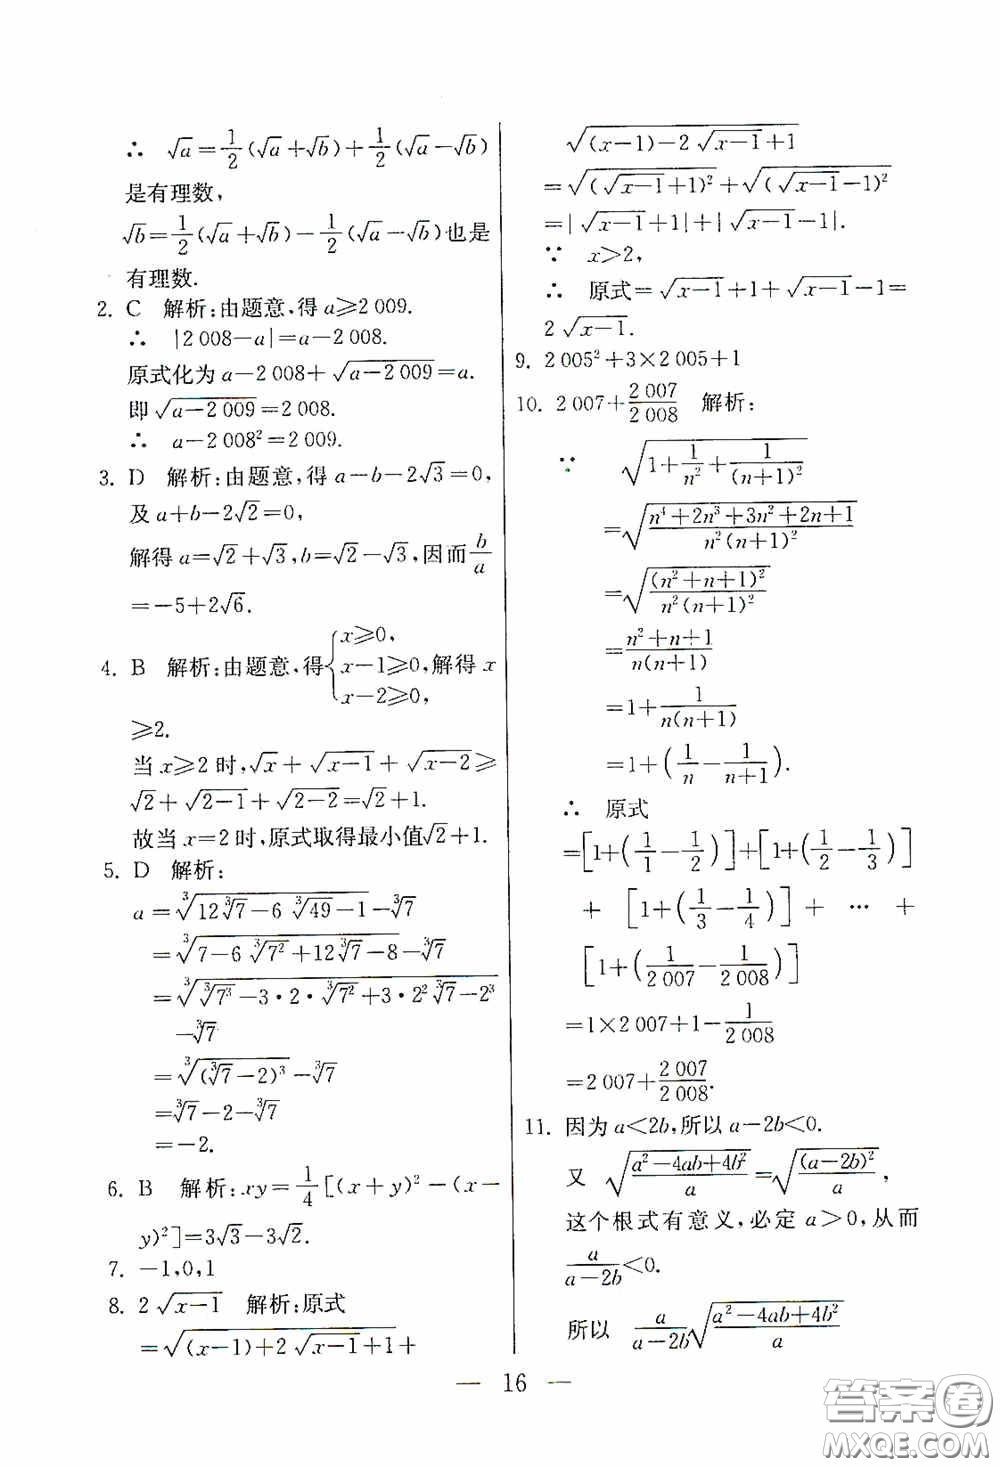 ∴ √a=1/2(√a+√b)+1/2(√a-√b)
是有理数,
√b=1/2(√a+√b)-1/2(√a-√b)也是
有理数.
2. C 解析:由题意,得a≥2 009.
∴ |2 008-a|=a-2 008.
原式化为a-2 008+√(a-2 009)=a.
即√(a-2 009)=2 008.
∴ a-2 008²=2 009.
3. D 解析:由题意,得a-b-2√3=0,
及a+b-2√2=0,
解得a=√2+√3,b=√2-√3,因而b/a
=-5+2√6.
4. B 解析:由题意,得{x≥0, x-1≥0, x-2≥0,解得x
≥2.
当x≥2时,√x+√(x-1)+√(x-2)≥
√2+√(2-1)+√(2-2)=√2+1.
故当x=2时,原式取得最小值√2+1.
5. D 解析:
a=∛(12∛7-6∛49-1)-∛7
=∛(7-6∛7²+12∛7-8)-∛7
=∛(∛7³-3·2·∛7²+3·2²∛7-2³)
-∛7
=∛((∛7-2)³)-∛7
=∛7-2-∛7
=-2.
6. B 解析:xy=1/4[(x+y)²-(x-
y)²]=3√3-3√2.
7. -1,0,1
8. 2√(x-1) 解析:原式
=√((x-1)+2√(x-1)+1)+
√((x-1)-2√(x-1)+1)
=√((√(x-1)+1)²)+√((√(x-1)-1)²)
=|√(x-1)+1|+|√(x-1)-1|.
∵ x>2,
∴ 原式=√(x-1)+1+√(x-1)-1=
2√(x-1).
9. 2 005²+3×2 005+1
10. 2 007+2 007/2 008 解析:
∵ √(1+1/n²+1/(n+1)²)
=√((n⁴+2n³+3n²+2n+1)/(n²(n+1)²))
=√((n²+n+1)²/(n²(n+1)²))
=(n²+n+1)/(n(n+1))
=1+1/(n(n+1))
=1+(1/n-1/(n+1)).
∴ 原式
=[1+(1/1-1/2)]+[1+(1/2-1/3)]
+[1+(1/3-1/4)]+…+
[1+(1/2 007-1/2 008)]
=1×2 007+1-1/2 008
=2 007+2 007/2 008.
11. 因为a<2b,所以a-2b<0.
又 √((a²-4ab+4b²)/a)=√((a-2b)²/a),
这个根式有意义,必定a>0,从而
a/(a-2b)<0.
所以 a/(a-2b)√((a²-4ab+4b²)/a)
— 16 —
答案卷
MXQE.COM